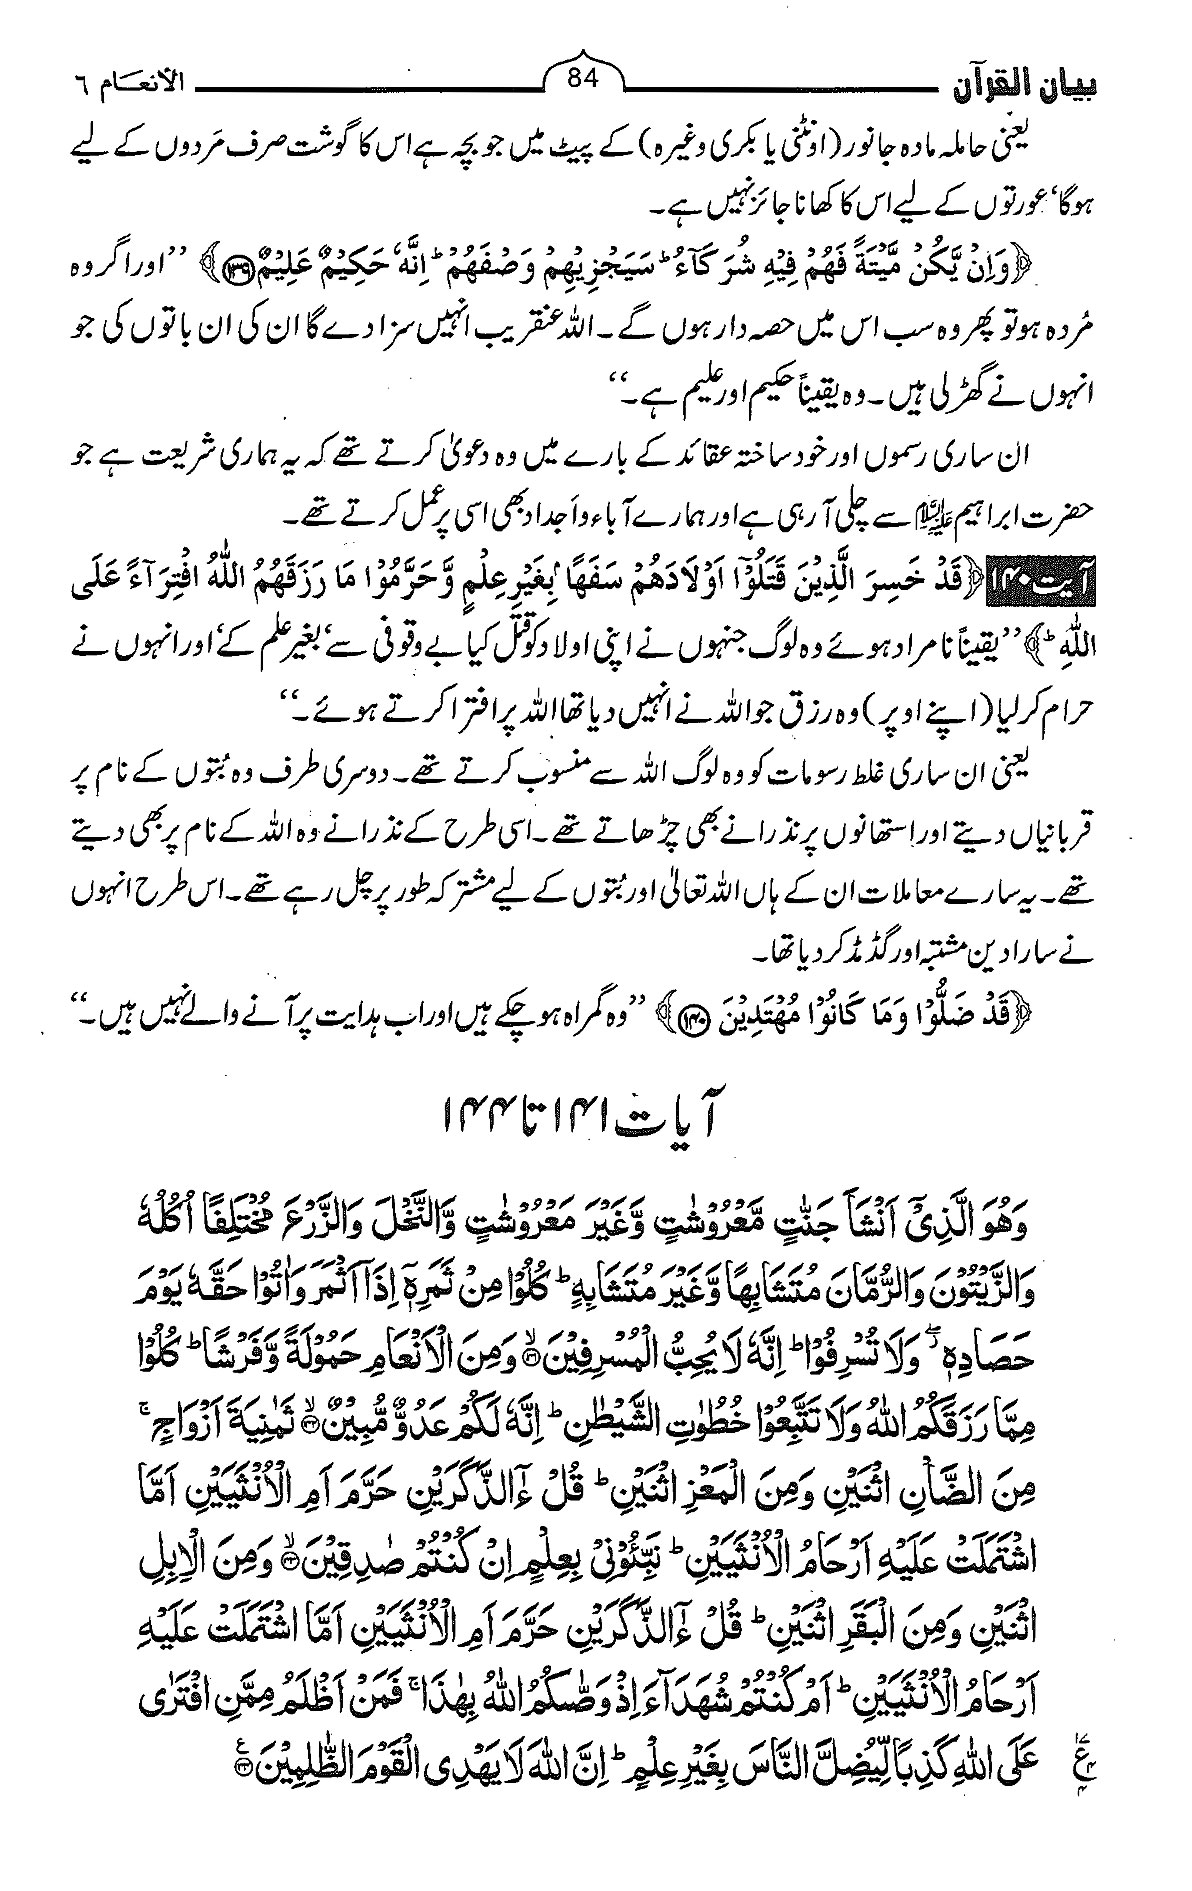 بیان القرآن 84 الانعام ٦
یعنی حاملہ مادہ جانور (اونٹنی یا بکری وغیرہ) کے پیٹ میں جو بچہ ہے اس کا گوشت صرف مَردوں کے لیے
ہوگا‘ عورتوں کے لیے اس کا کھانا جائز نہیں ہے۔
﴿وَاِنْ یَّكُنْ مَّیْتَةً فَهُمْ فِیْهِ شُرَكَآءُ ؕ سَیَجْزِیْهِمْ وَصْفَهُمْ ؕ اِنَّهٗ حَكِیْمٌ عَلِیْمٌ ۝۱۳۹﴾ ’’اور اگر وہ
مُردہ ہو تو پھر وہ سب اس میں حصہ دار ہوں گے۔ اللہ عنقریب انہیں سزا دے گا ان کی ان باتوں کی جو
انہوں نے گھڑ لی ہیں۔ وہ یقیناً حکیم اور علیم ہے۔‘‘
ان ساری رسموں اور خود ساختہ عقائد کے بارے میں وہ دعویٰ کرتے تھے کہ یہ ہماری شریعت ہے جو
حضرت ابراہیم علیہ السلام سے چلی آ رہی ہے اور ہمارے آباء و اَجداد بھی اسی پر عمل کرتے تھے۔
آیت ۱۴۰ ﴿قَدْ خَسِرَ الَّذِیْنَ قَتَلُوْۤا اَوْلَادَهُمْ سَفَهًۢا بِغَیْرِ عِلْمٍ وَّحَرَّمُوْا مَا رَزَقَهُمُ اللّٰهُ افْتِرَآءً عَلَی
اللّٰهِ ؕ﴾ ’’یقیناً نامراد ہوئے وہ لوگ جنہوں نے اپنی اولاد کو قتل کیا بے وقوفی سے‘ بغیر علم کے‘ اور انہوں نے
حرام کر لیا (اپنے اوپر) وہ رزق جو اللہ نے انہیں دیا تھا اللہ پر افترا کرتے ہوئے۔‘‘
یعنی ان ساری غلط رسومات کو وہ لوگ اللہ سے منسوب کرتے تھے۔ دوسری طرف وہ بُتوں کے نام پر
قربانیاں دیتے اور استھانوں پر نذرانے بھی چڑھاتے تھے۔ اسی طرح کے نذرانے وہ اللہ کے نام پر بھی دیتے
تھے۔ یہ سارے معاملات ان کے ہاں اللہ تعالیٰ اور بُتوں کے لیے مشترکہ طور پر چل رہے تھے۔ اس طرح انہوں
نے سارا دین مشتبہ اور گڈمڈ کر دیا تھا۔
﴿قَدْ ضَلُّوْا وَمَا كَانُوْا مُهْتَدِیْنَ ۝۱۴۰﴾ ’’وہ گمراہ ہو چکے ہیں اور اب ہدایت پر آنے والے نہیں ہیں۔‘‘
آیات ۱۴۱ تا ۱۴۴
وَهُوَ الَّذِیْۤ اَنْشَاَ جَنّٰتٍ مَّعْرُوْشٰتٍ وَّغَیْرَ مَعْرُوْشٰتٍ وَّالنَّخْلَ وَالزَّرْعَ مُخْتَلِفًا اُكُلُهٗ
وَالزَّیْتُوْنَ وَالرُّمَّانَ مُتَشَابِهًا وَّغَیْرَ مُتَشَابِهٍ ؕ كُلُوْا مِنْ ثَمَرِهٖۤ اِذَاۤ اَثْمَرَ وَاٰتُوْا حَقَّهٗ یَوْمَ
حَصَادِهٖ ۖ وَلَا تُسْرِفُوْا ؕ اِنَّهٗ لَا یُحِبُّ الْمُسْرِفِیْنَ ۝۱۴۱ۙ وَمِنَ الْاَنْعَامِ حَمُوْلَةً وَّفَرْشًا ؕ كُلُوْا
مِمَّا رَزَقَكُمُ اللّٰهُ وَلَا تَتَّبِعُوْا خُطُوٰتِ الشَّیْطٰنِ ؕ اِنَّهٗ لَكُمْ عَدُوٌّ مُّبِیْنٌ ۝۱۴۲ۙ ثَمٰنِیَةَ اَزْوَاجٍ ۚ
مِنَ الضَّاْنِ اثْنَیْنِ وَمِنَ الْمَعْزِ اثْنَیْنِ ؕ قُلْ ءٰٓالذَّكَرَیْنِ حَرَّمَ اَمِ الْاُنْثَیَیْنِ اَمَّا
اشْتَمَلَتْ عَلَیْهِ اَرْحَامُ الْاُنْثَیَیْنِ ؕ نَبِّـُٔوْنِیْ بِعِلْمٍ اِنْ كُنْتُمْ صٰدِقِیْنَ ۝۱۴۳ۙ وَمِنَ الْاِبِلِ
اثْنَیْنِ وَمِنَ الْبَقَرِ اثْنَیْنِ ؕ قُلْ ءٰٓالذَّكَرَیْنِ حَرَّمَ اَمِ الْاُنْثَیَیْنِ اَمَّا اشْتَمَلَتْ عَلَیْهِ
اَرْحَامُ الْاُنْثَیَیْنِ ؕ اَمْ كُنْتُمْ شُهَدَآءَ اِذْ وَصّٰىكُمُ اللّٰهُ بِهٰذَا ۚ فَمَنْ اَظْلَمُ مِمَّنِ افْتَرٰی
عَلَی اللّٰهِ كَذِبًا لِّیُضِلَّ النَّاسَ بِغَیْرِ عِلْمٍ ؕ اِنَّ اللّٰهَ لَا یَهْدِی الْقَوْمَ الظّٰلِمِیْنَ ۝۱۴۴ ع